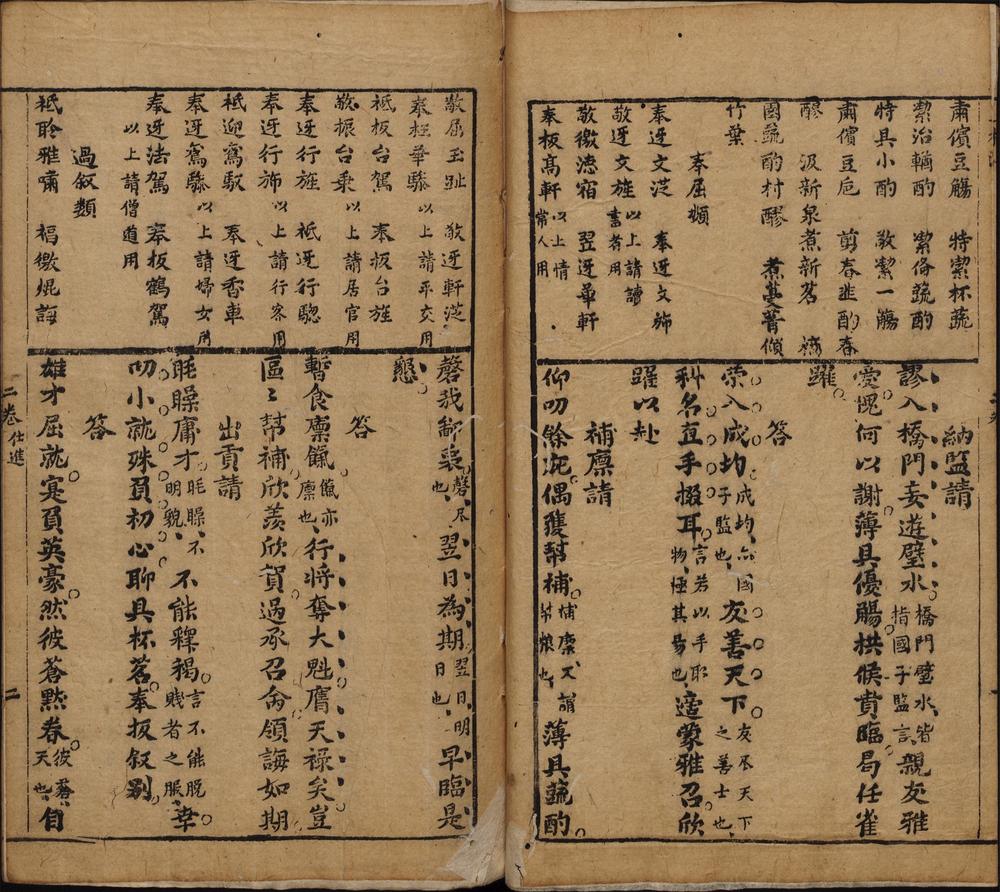 肅儐豆觴　特潔杯蔬
潔治輶酌　潔俻蔬酌
特具小酌　敬潔一觴
肅儐豆卮　剪春韮酌春
醪　汲新泉煮新茗　
園蔬酌村醪　煮蔓菁傾
竹葉
奉屈類
奉迓文茫　奉迓文斾
敬迓文旌　以上請讀書者用
敬徼德宿　翌迓華軒
奉扳髙軒　以上情常人用
納監請
謬入橋門妄遊璧水橋門璧水皆指國子監言親友雅
愛愧何以謝薄具優觴拱候貴臨局任雀
躍
答
榮入成均成均亦國子監也友善天下友不天下之善士也
科名直手掇耳言若以手取物極其易也適蒙雅召欣
躍以赴
補廪請
仰叨餘疵偶獲幇補補廪又謂幇粮也薄具蔬酌
敬屈玉趾　敬迓軒茫
奉枉華驂　以上請平交用
祗扳台駕　奉扳台旌
敬振台乗　以上請居官用
奉迓行旌　祗迓行騘
奉迓行斾　以上請行客用
祗迎鸞馭　奉迓香車
奉迓鸞驂　以上請婦女用
奉迓法駕　奉扳鶴駕
以上請僧道用
過叙類
祗聆雅嘯　福徼焜誨
罄我鄙衷罄尽也翌日為期翌日明日也早臨是
懇
答
暫食廪餼餼亦廪也行將奪大魁膺天禄矣豈
區〻幇補欣羨欣賀過承召侖領誨如期
出貢請
眊矂庸才眊矂不明貌不能釋褐言不能脱賤者之服幸
叨小就殊負初心聊具杯茗奉扳叙别
答
雄才屈就寔負英豪然彼蒼黙眷彼蒼天也自
二卷仕進　二